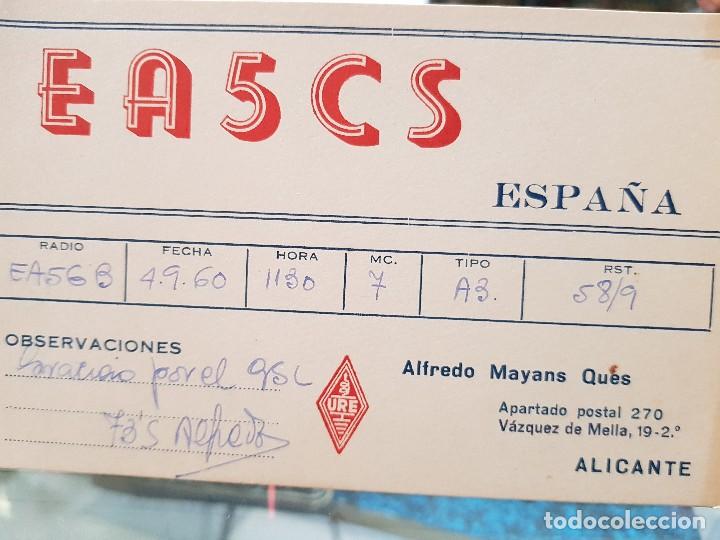 EA5CS
ESPAÑA
RADIO FECHA HORA MC. TIPO RST.
EA5GB 4.9.60 1130 7 A3. 58/9
OBSERVACIONES
Gracias por el QSL
73'S Alfredo
URE
Alfredo Mayans Qués
Apartado postal 270
Vázquez de Mella, 19-2.º
ALICANTE
todocoleccion